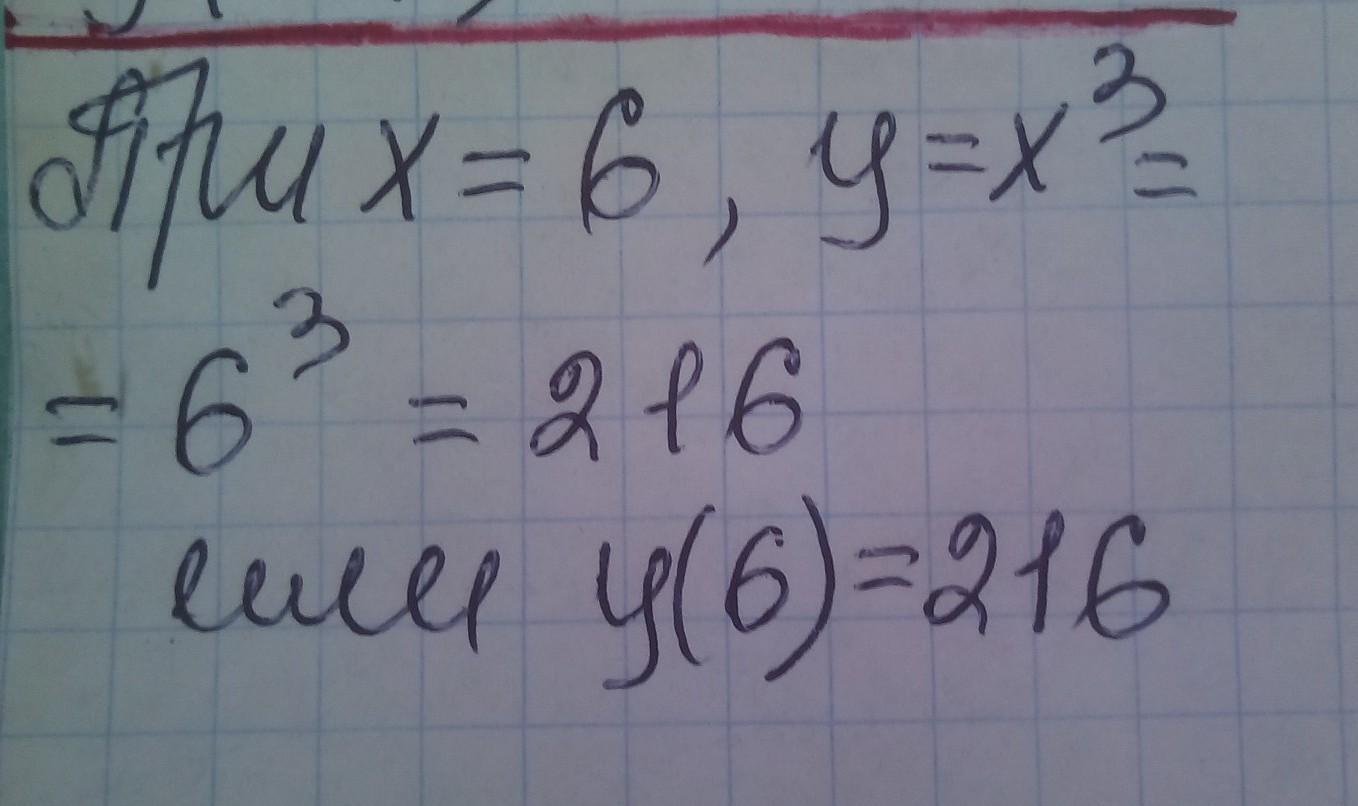 При x = 6, y = x³ =
= 6³ = 216
или y(6) = 216